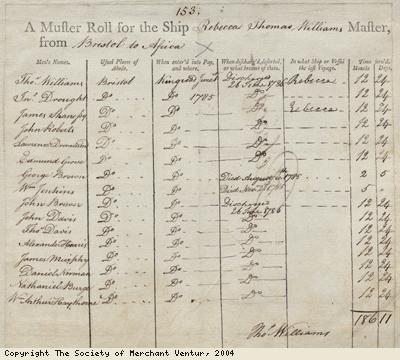 153.
A Muster Roll for the Ship Rebecca Thomas Williams Master,
from Bristol to Africa
Men's Names. Usual Places of Abode. When enter'd into Pay, and where. When discharg'd, deserted, or what became of them. In what Ship or Vessel the last Voyage. Time serv'd. Months Days.
Thos Williams Bristol Kingroad 1785 Discharged 26 1786 Rebecca 12 24
Jno. Drought Do Do Do 12 24
James Sharp Do Do Do Rebecca 12 24
John Roberts Do Do Do 12 24
Laurence Do Do Do 12 24
Edmund Grove Do Do Do 12 24
George Brown Do Do Died August 1785 2 5
Wm Jenkins Do Do Died Novr 1785 5
John Brown Do Do Discharged 12 24
John Davis Do Do 26 1786 12 24
Thos Davis Do Do Do 12 24
Alexander Harris Do Do Do 12 24
James Murphy Do Do Do 12 24
Daniel Norman Do Do Do 12 24
Nathaniel Do Do Do 12 24
Wm Arthur Do Do Do 12 24
186 11
Thos Williams
Copyright The Society of Merchant Ventur, 2004